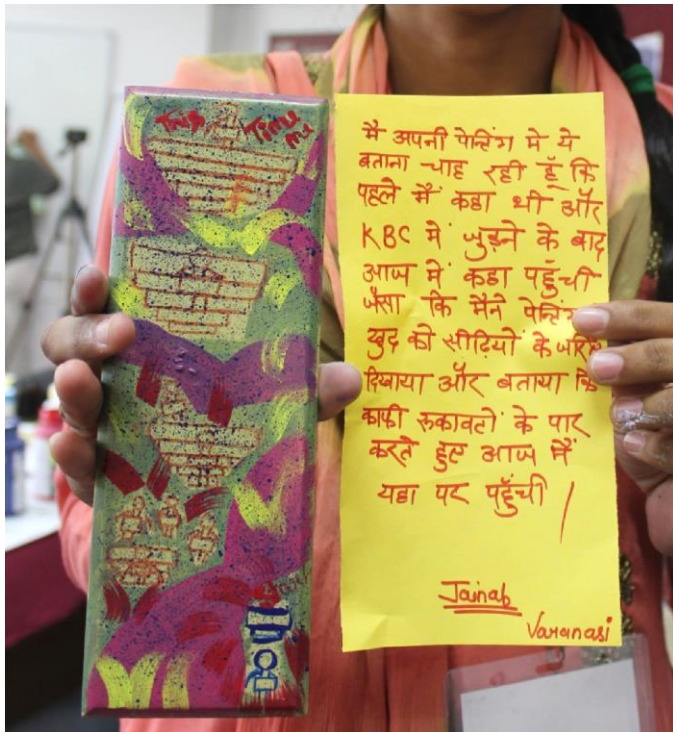 मै अपनी पेन्टिंग मे ये
बताना चाह रही हूँ कि
पहले मैं कहा थी और
KBC में जुड़ने के बाद
आज में कहा पहुँची
जैसा कि मैने पेन्टिंग
खुद को सीढ़ियों के जरिए
दिखाया और बताया कि
काफी रूकावटों के पार
करते हुए आज मैं
यहा पर पहुँची |
Jainab
Varanasi